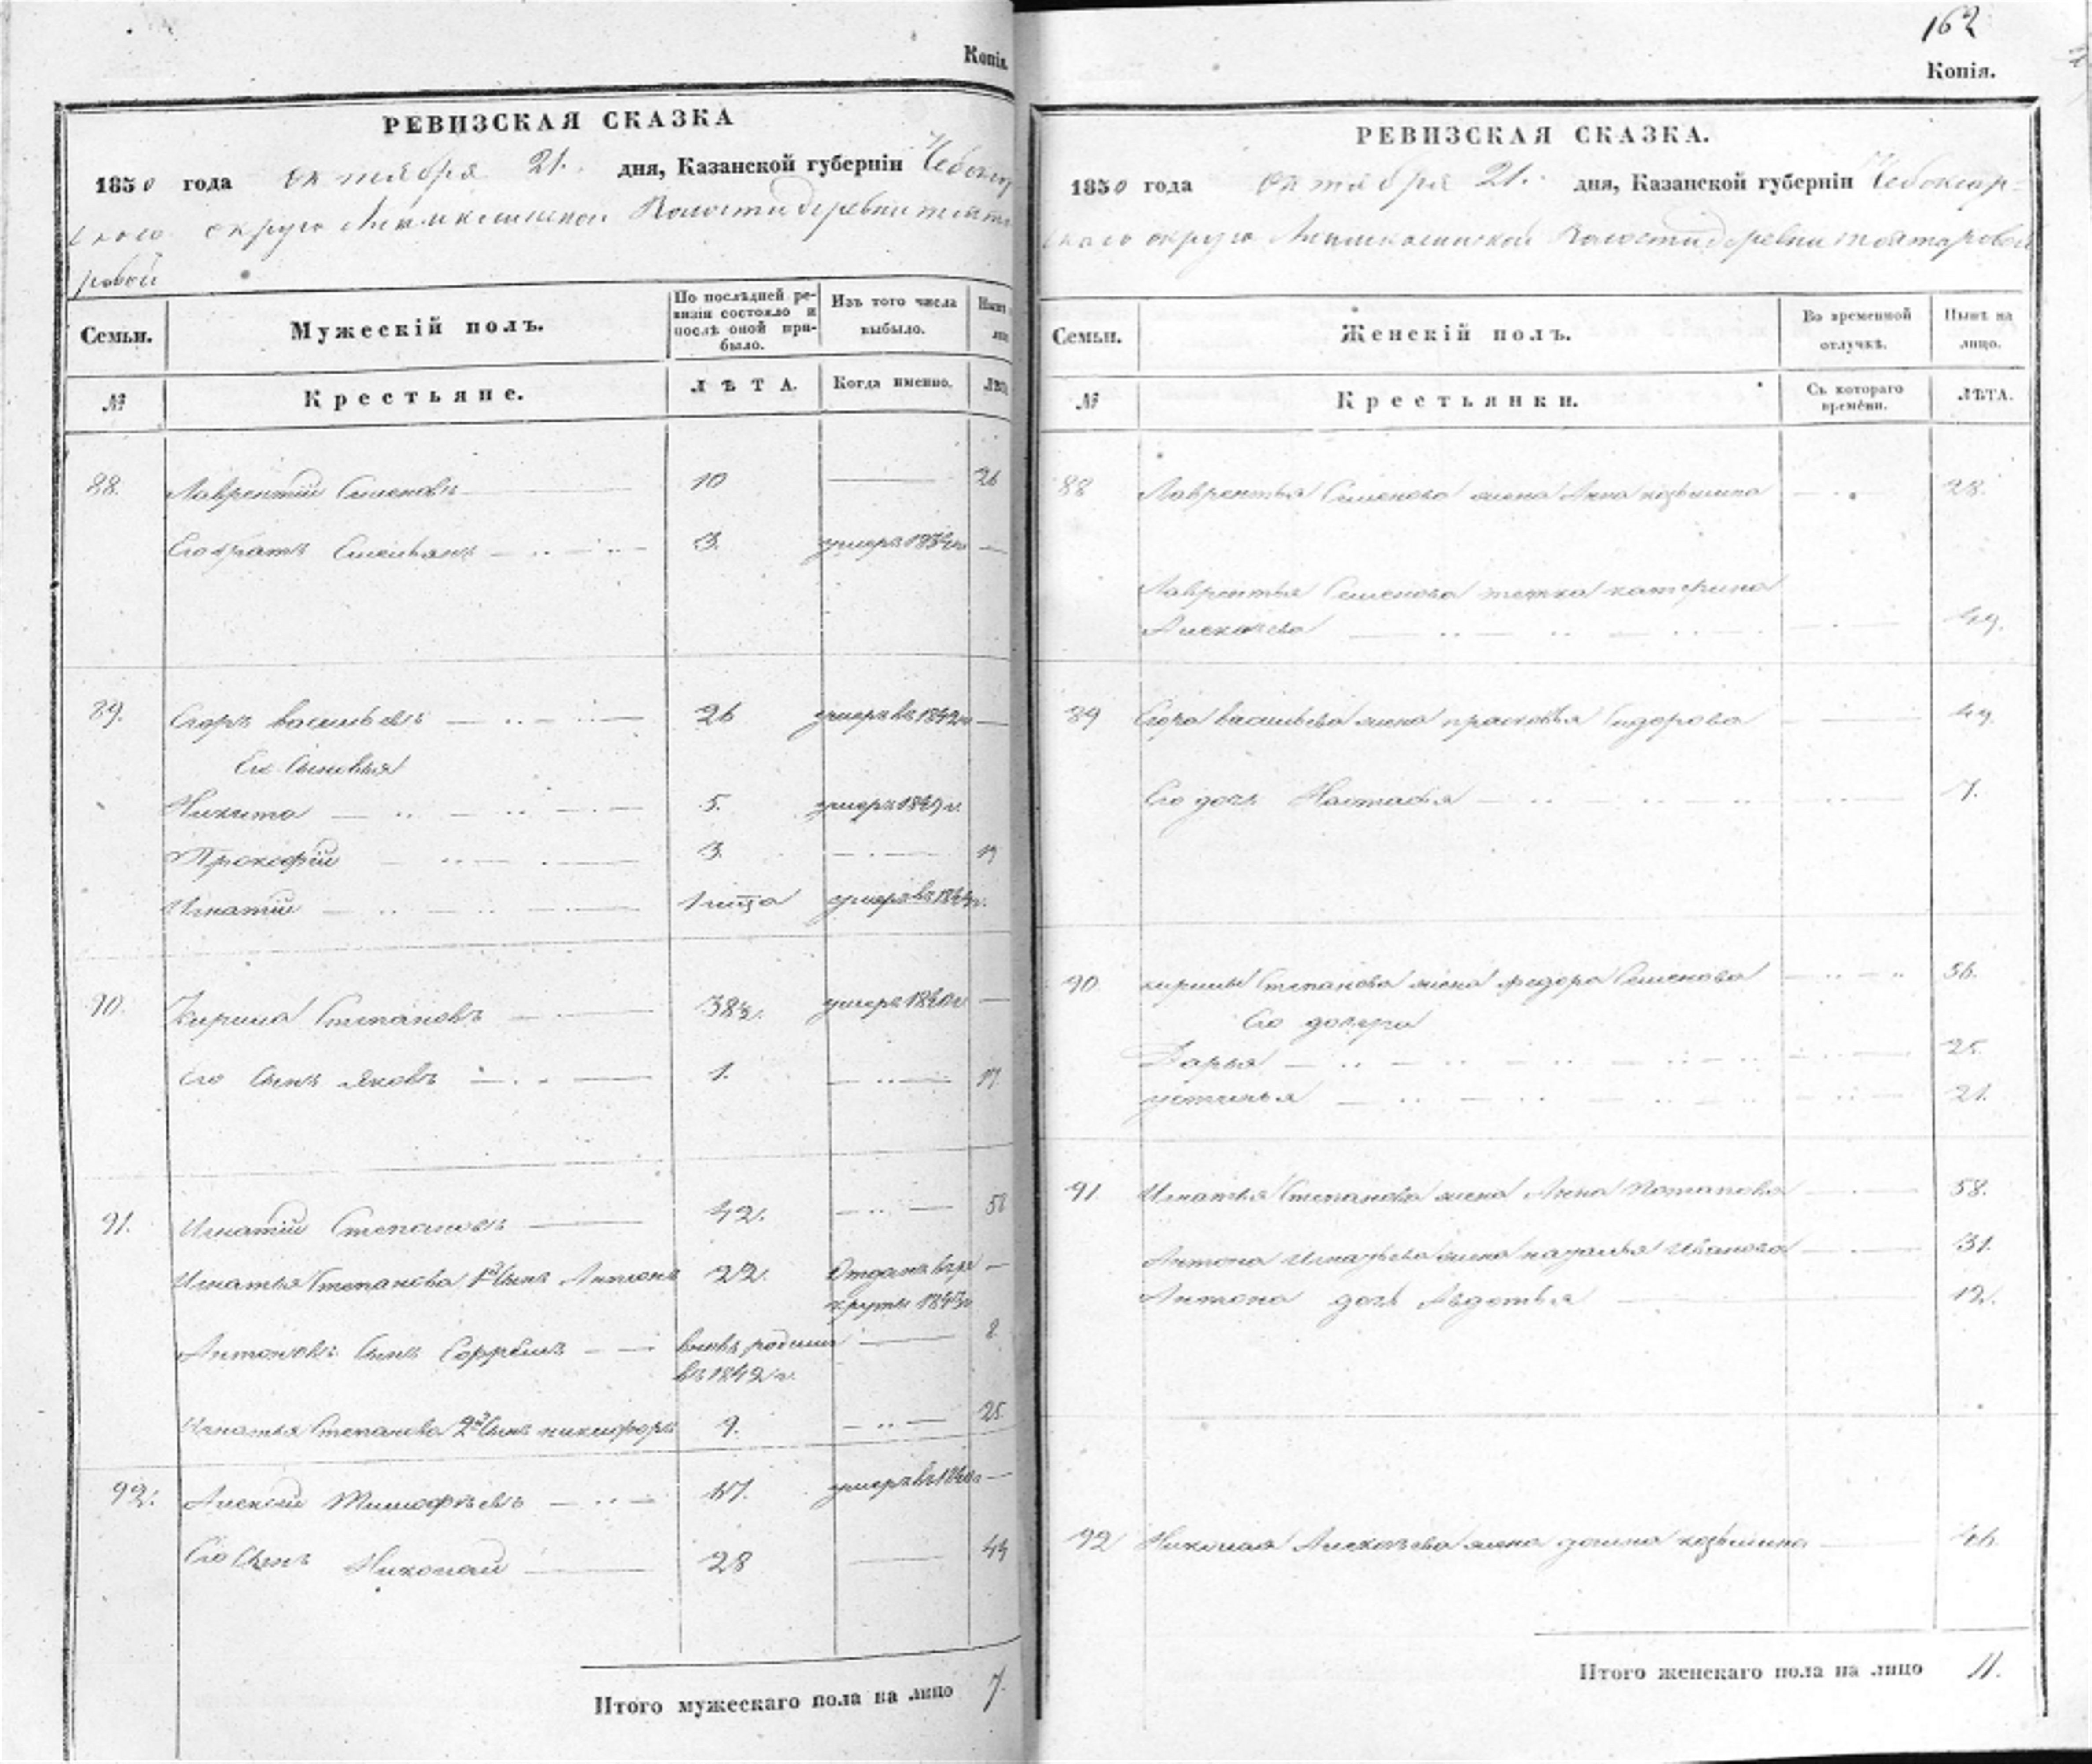 Копія.
РЕВИЗСКАЯ СКАЗКА
1850 года октября 21. дня, Казанской губерніи Чебоксар
скаго округа Волости деревни
ровой
Семьи. Мужескій полъ. По послѣдней ре-визіи состояло и послѣ оной при-было. Изъ того числа выбыло. Нынѣ
№ Крестьяне. ЛѢТА. Когда именно. ЛѢТ
88. Лаврентій Семеновъ 10 26
Его братъ Емельянъ 3. умеръ
89. Егоръ Васильевъ 26 умеръ въ 1842 г
Его Сыновья
Никита 5. умеръ 1849 г.
Прокофій 3. 19
Игнатій умеръ въ
90. Кирила Степановъ 38½. умеръ 1840 г
его Сынъ Яковъ 1. 17.
91. Игнатій Степановъ 42. 58
Игнатья Степанова 1й Сынъ Антонъ 22. Отданъ въ ре
круты
Антоновъ Сынъ вновь родился 8
въ 1842 г.
Игнатья Степанова 2й Сынъ никифоръ 9. 25
92. Алексѣй Тимофѣевъ умеръ въ
Его Сынъ Николай 28 44
Итого мужескаго пола на лицо 7.
162
Копія.
РЕВИЗСКАЯ СКАЗКА.
1850 года октября 21. дня, Казанской губерніи Чебоксар-
скаго округа Волости деревни
Семьи. Женскій полъ. Во временной отлучкѣ. Нынѣ на лицо.
№ Крестьянки. Съ котораго времени. ЛѢТА.
88 Лаврентья Семенова жена Анна козьмина 28.
Лаврентья Семенова тетка катерина
Алексѣева 49.
89 Егора васильева жена прасковья Сидорова 49.
Его дочь Настасья 7.
90 кирилы Степанова жена федора Семенова 56.
Его дочери
Дарья 25.
устинья 21.
91. Игнатья Степанова жена Анна Потапова 58.
Антона Игнатьева жена наталья Иванова 31.
Антона дочь Авдотья 12.
92 Николая Алексѣева жена домна козьмина 46.
Итого женскаго пола на лицо 11.